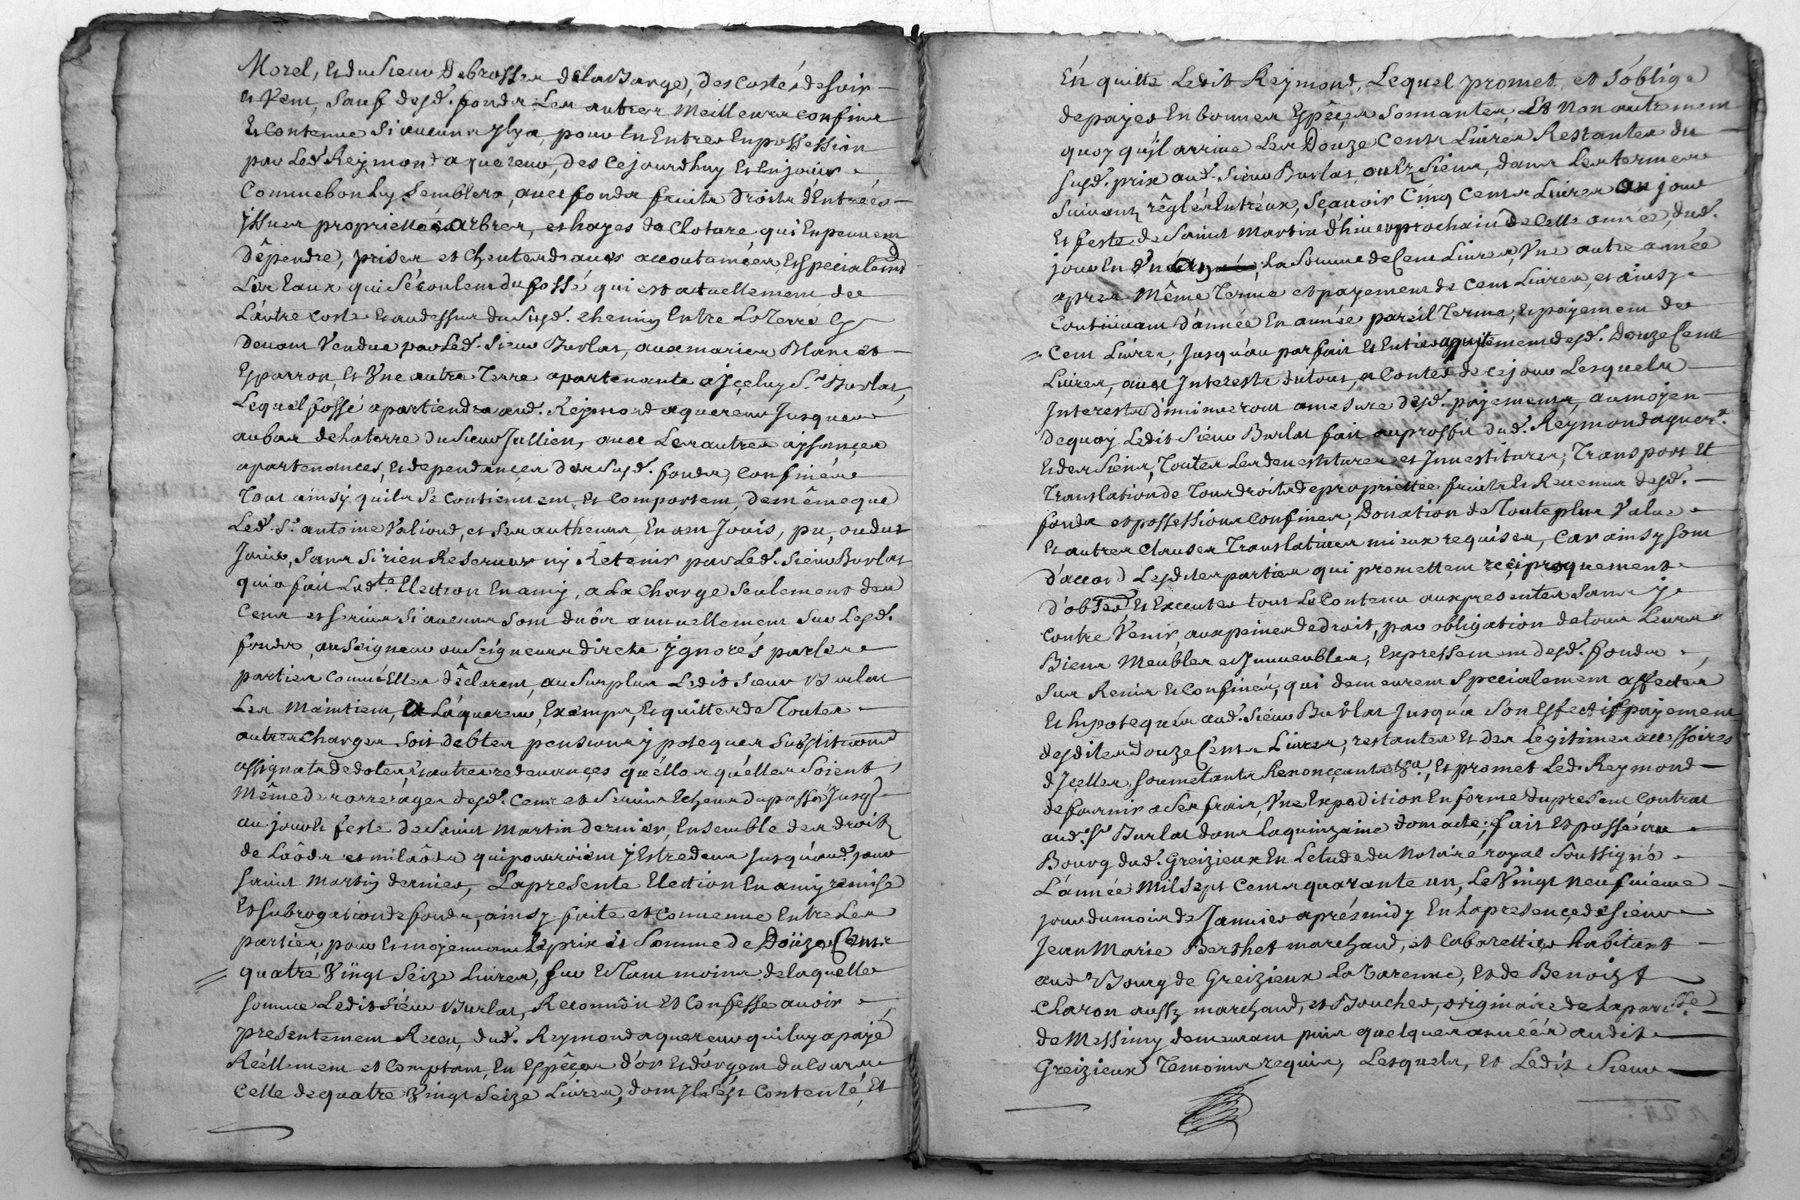 Morel, et du sieur Debrosser de la Barge, des costé de soir
et Vent, Sauf desd. fonds Les autres Meilleurs confins
Et Contenue Si aucuns Jl y a, pour En Entrer En possession
par Led. Reymond aquereur, des Cejourdhuy Et En jouir
Comme bon Luy Semblera, avec fonds fruits Droits d'Entrées
jssues proprietté arbres, et hayes de Cloture qui En peuvent
Dêpendre, prises et Chentes d'aux accoutumées, Et specialement
Les Eaux qui Sécoulent du fossé qui est actuellement de
L'autre costé Et au dessus du susd. chemin Entre La Terre Cy
Devant Vendue par Led. Sieur Burlat, aux mariés Blanc et
Esparron, Et Vne autre Terre apartenante à Jceluy Sr. Burlat,
Lequel fossé apartiendra aud. Reymond aquereur Jusques
au bas de la terre du Sieur Jullien, avec Les autres aysances
apartenances, Et dependances des susd. fonds, Confinés
Tout ainsy quils se Contiennent Et Comportent, De même que
Led. Sr. antoine Valioud, et Ses autheurs, En ont Joüis, pu, ou dut
Joüir, Sans Si rien Reserver ny Retenir par Led. Sieur Burlat
qui a fait Lad.te Election En amy, a La Charge Seulement des
Cens et servis Si aucuns sont du ôu annuellement sur Lesd.
fonds, au Seigneur ou Seigneurs directs ignorés par les
parties Comme Elles dêclarent, au Surplus Ledit Sieur Burlat
Les Maintient, a L'aquereur, Exempts, Et quittes de Toutes
autres charges soit debtes pensions ypoteques substitutions
assignats de dotes, et autres redevances quelles quelles soient,
Même des arrerages desd. Cens et Servis Echeus du passé Jusq.
au jour Et feste de Saint Martin dernier, Ensemble des droits
de Laôds et milaôds qui pouroient y Estre deus Jusqu'aud. jour
saint Martin dernier, La presente Election En amy remise
Et subrogation de fonds, ainsy faite et Convenue Entre Les
parties, pour Et moyennant Le prix et Somme de Doüze Cents
quatre Vingt Seize Livres, sur Et Tant moins de laquelle
somme Ledit Sieur Burlat, Reconnôit Et Confesse avoir
presentement Receu, dud. Reymond aquereur qui luy a payé
Réellement et Comptant, En Espêces d'or Et d'argent du Cours
Celle de quatre Vingt Seize Livres, dont Jl s'est Contenté, Et
En quitte Ledit Reymond, Lequel promet et s'oblige
de payer En bonnes Espêces Sonnantes, Et Non autrement
quoy qu'il arrive Les Douze Cents Livres Restantes du
susd. prix aud. Sieur Burlat, ou Ez Siens, dans Les termes
suivants réglés Entréux, Sçavoir Cinq Cents Livres au jour
Et feste de Saint Martin d'hiver prochain de Cette année, dud.
jour En Vn an, La Somme de Cent Livres, Vne autre année
apres Même Terme et payement de Cent Livres, et ainsy
Continuant d'année En année pareil Terme, Et payement de
Cent Livres, Jusqu'au parfait Et Entier aquitement desd. Douze Cents
Livres, avec Interests du tout, a Conter de ce jour Lesquels
Interests diminueront a mesure desd. payements, au moyen
De quoy Ledit Sieur Burlat fait au proffit dud. Reymond aquer.r
Et des Siens, Toutes Les devestitures et Jnvestitures, Transport Et
Translation de Tous droits de propriettée fruits Et Revenus desd.
fonds et possessions confinés, Donation de Toute plus Value
Et autres clauses Translatives mieux requises, Car ainsy sont
d'accord Lesdites parties qui promettent reciproquement
d'obser Et Executer tout Le Contenu aux presentes sans y
contre Venir, aux peines de droit, par obligation de tous Leurs
Biens Meubles et Jmmeubles, Expressement desd. fonds
sur Remis Et Confinés, qui demeurent Specialement affectés
Et hipotequés aud. Sieur Burlat Jusqu'a Son Effectif payement
desdites douze Cents Livres, restantes Et des Legitimes accessoires
d'Jcelles, soumettants Renonçants &a, Et promet Led. Reymond
de fournir a Ses frais, Vne Expedition En forme du present Contrat
aud. Sr. Burlat dans La quinzaine dont acte: fait Et passé au
Bourg dud. Greizieux En Letude du Notaire royal Soussigné
L'année Mil sept Cents quarante un, Le Vingt neufuieme
jour du mois de Janvier aprés midy En La presence de Sieur
Jean Marie Berthet marchand, et Cabarettier habitant
aud. Bourg de Greizieux La Varenne, Et de Benoist
Charon aussy marchand, et Boucher, originaire de La parisse
de Messimy demeurant puis quelques années audit
Greizieux Temoins requis, Lesquels, Et Ledit Sieur